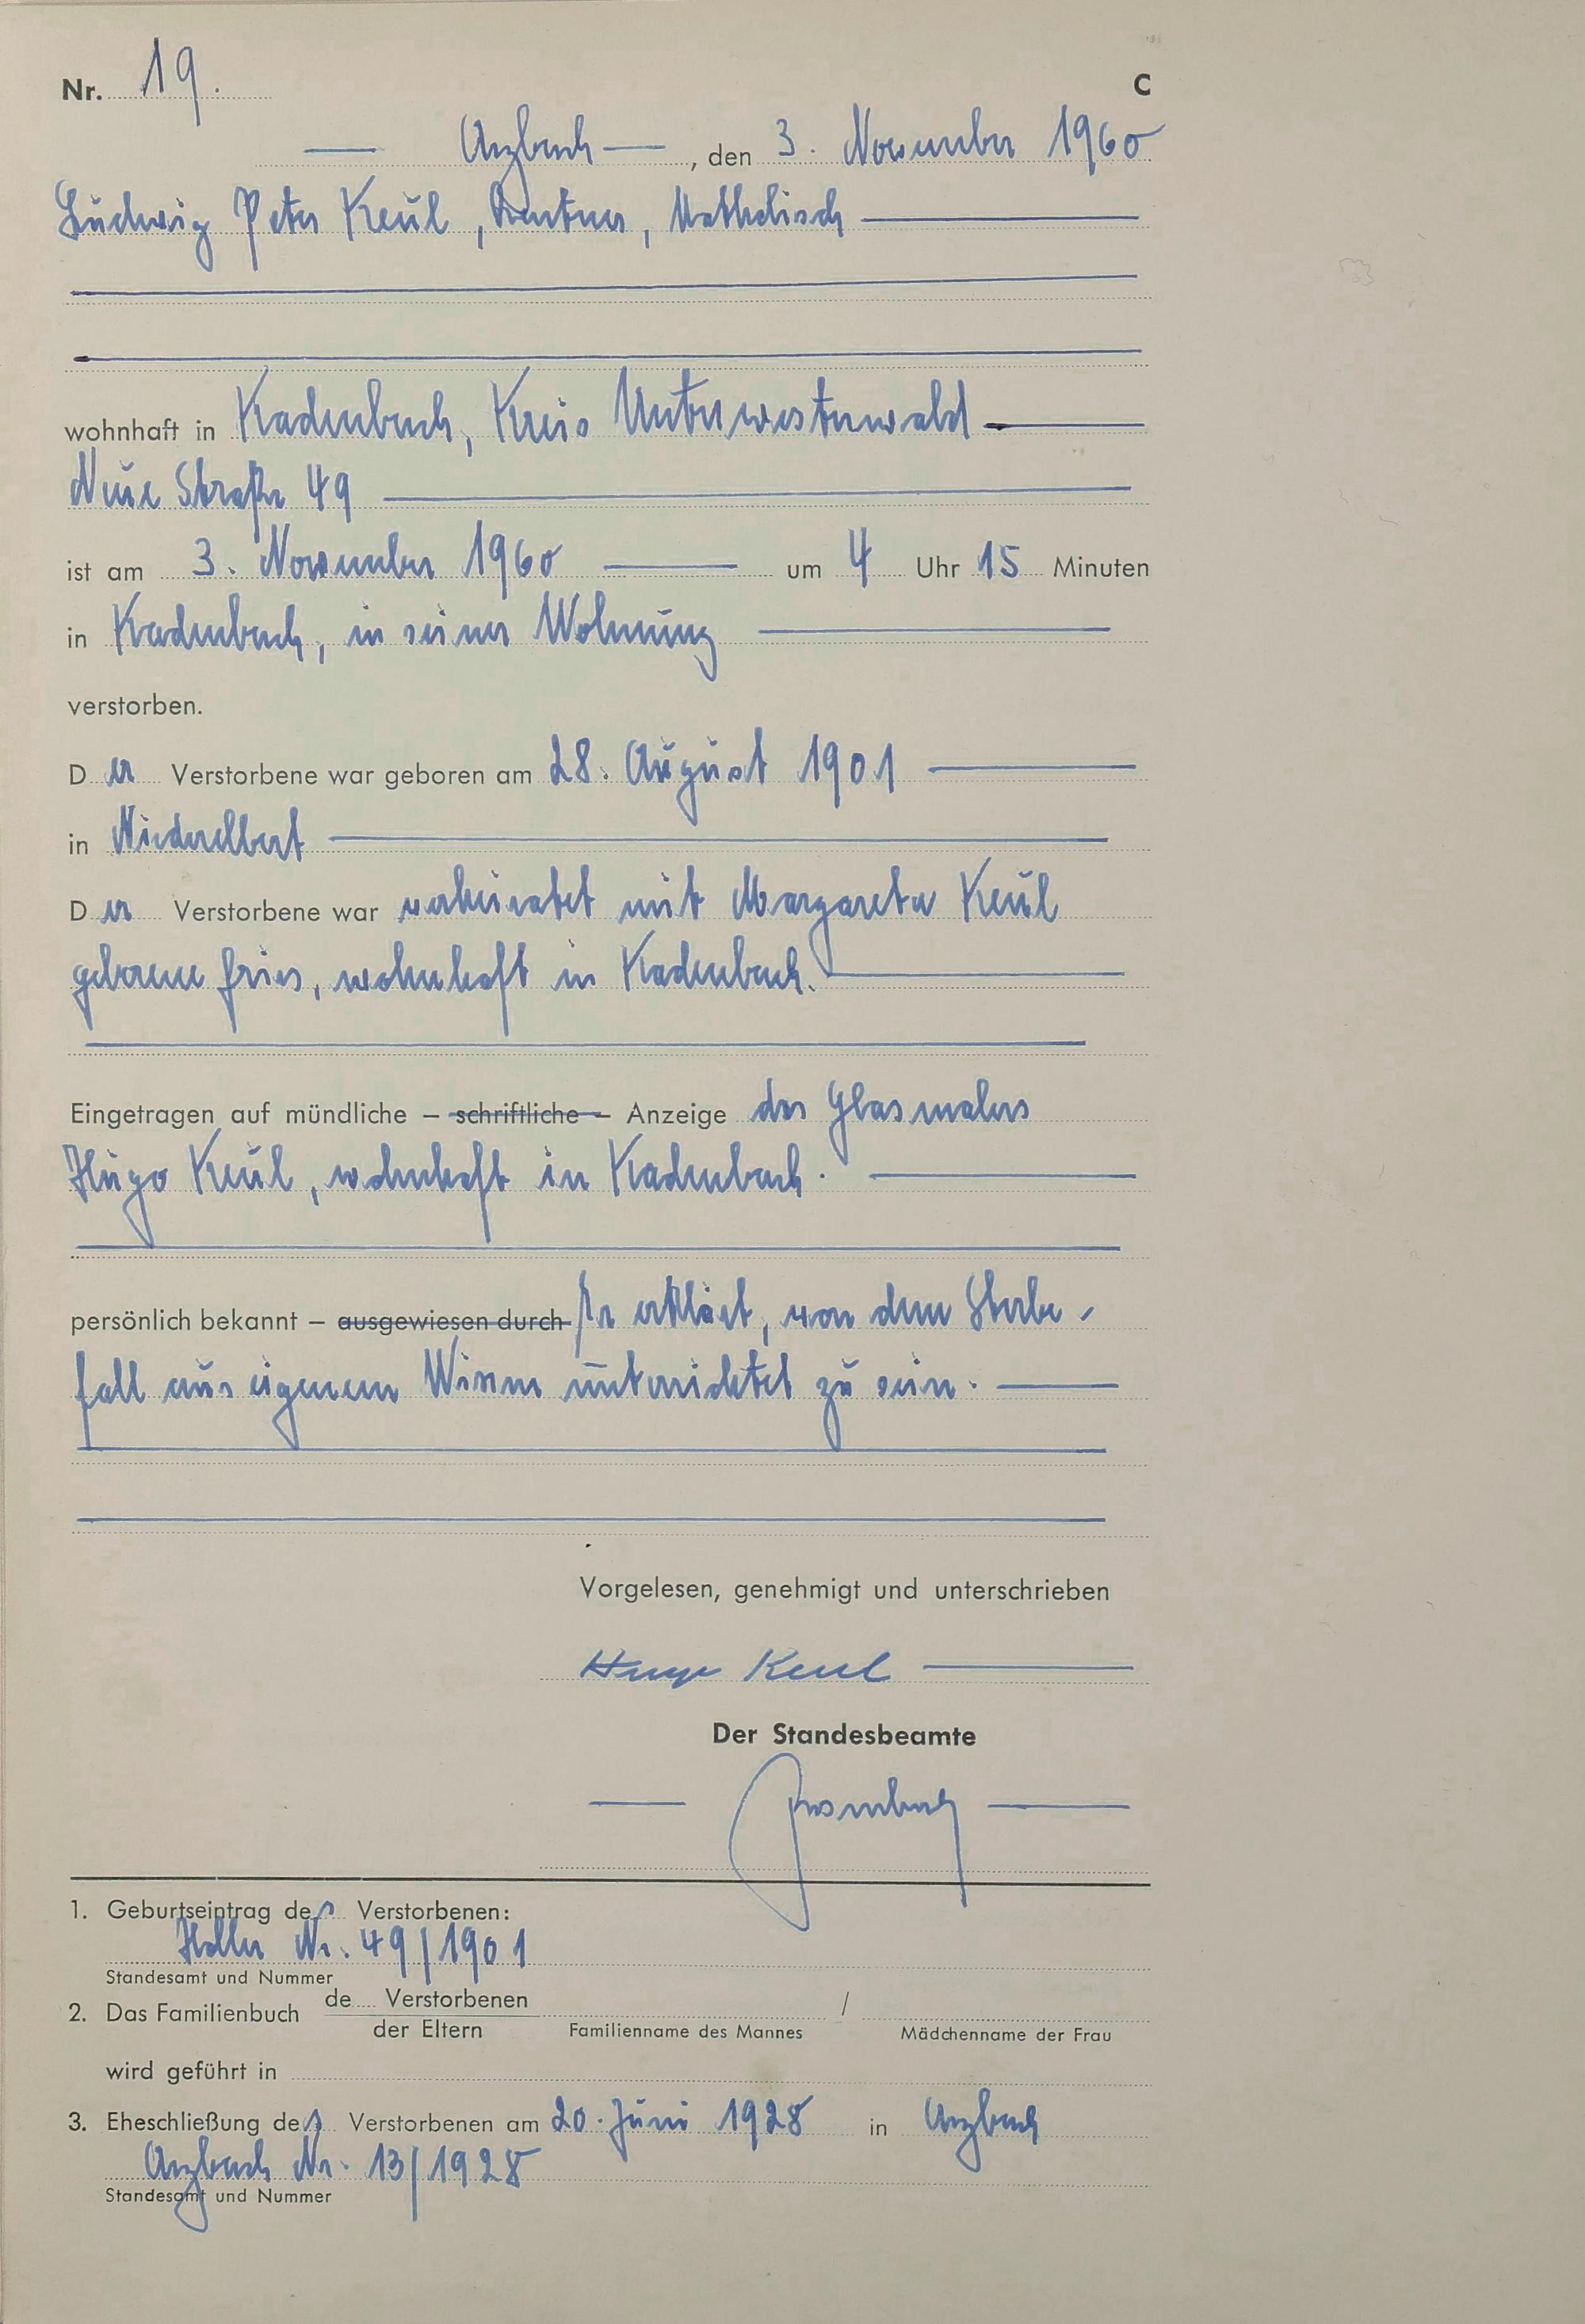 Nr. 19.
C
— Arzbach —, den 3. November 1960
Ludwig Peter Keul, Rentner, katholisch
wohnhaft in Kadenbach, Kreis Unterwesterwald
Neue Straße 49
ist am 3. November 1960 um 4 Uhr 15 Minuten
in Kadenbach, in seiner Wohnung
verstorben.
Der Verstorbene war geboren am 28. August 1901
in Niederelbert
Der Verstorbene war verheiratet mit Margareta Keul
geborene Fries, wohnhaft in Kadenbach.
Eingetragen auf mündliche – schriftliche – Anzeige des Glasmalers
Hugo Keul, wohnhaft in Kadenbach.
persönlich bekannt – ausgewiesen durch Er erklärt, von dem Sterbe-
fall aus eigenem Wissen unterrichtet zu sein.
Vorgelesen, genehmigt und unterschrieben
Hugo Keul
Der Standesbeamte
1. Geburtseintrag des Verstorbenen:
Holler Nr. 49/1901
Standesamt und Nummer
2. Das Familienbuch de Verstorbenen /
der Eltern Familienname des Mannes Mädchenname der Frau
wird geführt in
3. Eheschließung des Verstorbenen am 20. Juni 1928 in Arzbach
Arzbach Nr. 13/1928
Standesamt und Nummer